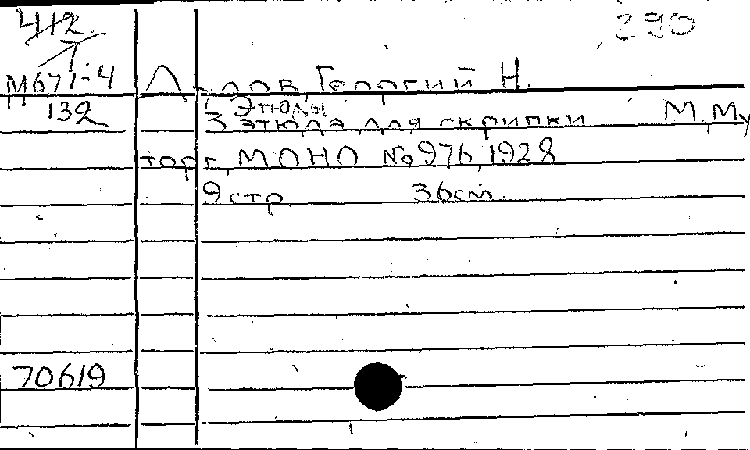 412 290
М671-4 Дулов, Георгий Н.
132 Этюды
3 этюда для скрипки М, Му
торг, МОНО № 976, 1928
9 стр 36см.
70619